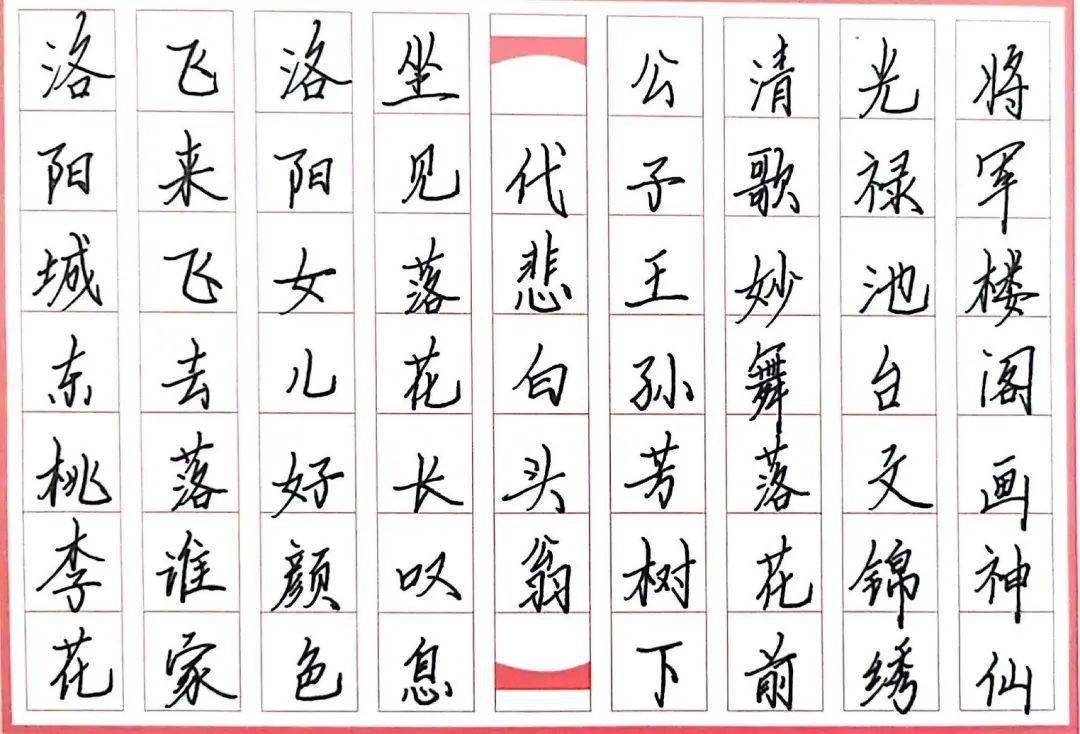 洛阳城东桃李花
飞来飞去落谁家
洛阳女儿好颜色
坐见落花长叹息
代悲白头翁
公子王孙芳树下
清歌妙舞落花前
光禄池台文锦绣
将军楼阁画神仙